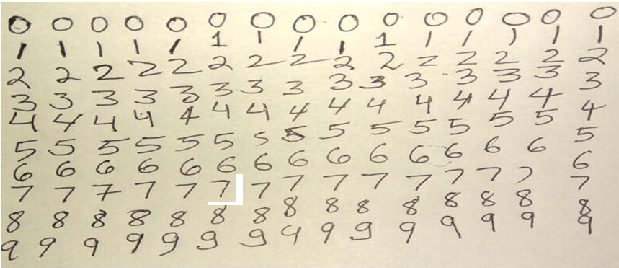 0 0 0 0 0 0 0 0 0 0 0 0 0 0 0
1 1 1 1 1 1 1 1 1 1 1 1 1 1 1
2 2 2 2 2 2 2 2 2 2 2 2 2 2 2
3 3 3 3 3 3 3 3 3 3 3 3 3 3 3 3
4 4 4 4 4 4 4 4 4 4 4 4 4 4 4
5 5 5 5 5 5 5 5 5 5 5 5 5 5 5
6 6 6 6 6 6 6 6 6 6 6 6 6 6 6
7 7 7 7 7 7 7 7 7 7 7 7 7 7 7
8 8 8 8 8 8 8 8 8 8 8 8 8 8 8
9 9 9 9 9 9 9 9 9 9 9 9 9 9 9